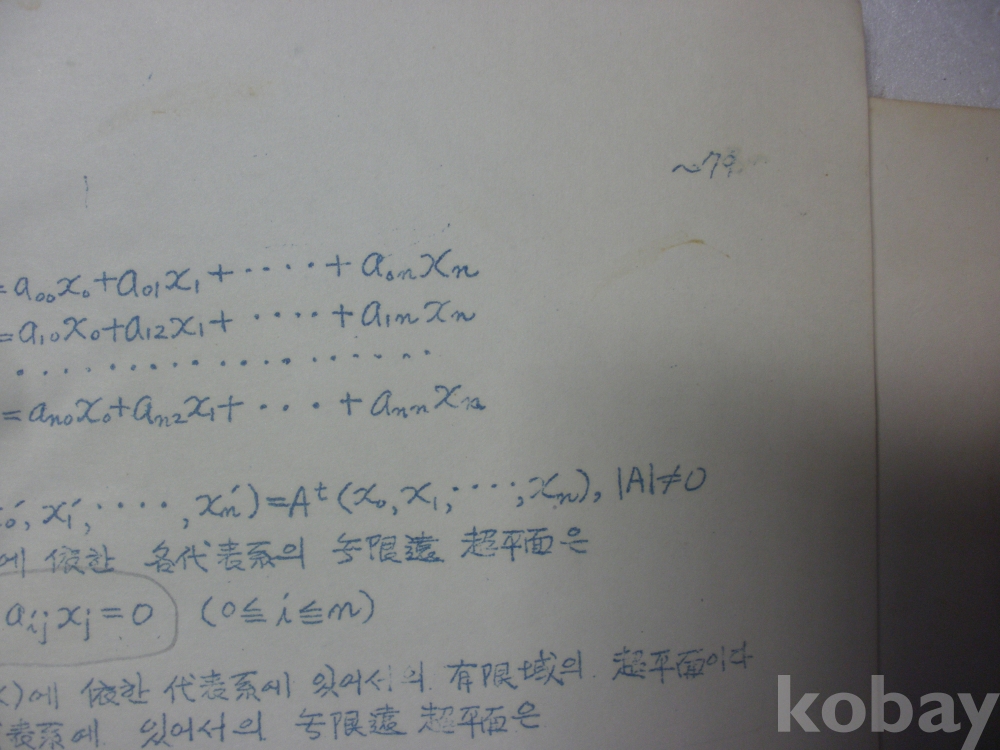 ~79
=a₀₀x₀+a₀₁x₁+····+a₀ₙxₙ
=a₁₀x₀+a₁₂x₁+····+a₁ₙxₙ
···················
=aₙ₀x₀+aₙ₂x₁+····+aₙₙxₙ
x₀′,x₁′,····,xₙ′)=Aᵗ(x₀,x₁,····,xₙ), |A|≠0
에 依한 各代表系의 무限遠 超平面은
aᵢⱼxⱼ=0 (0≦i≦n)
에 依한 代表系에 있어서의 有限域의 超平面이다
表系에 있어서의 무限遠 超平面은
kobay